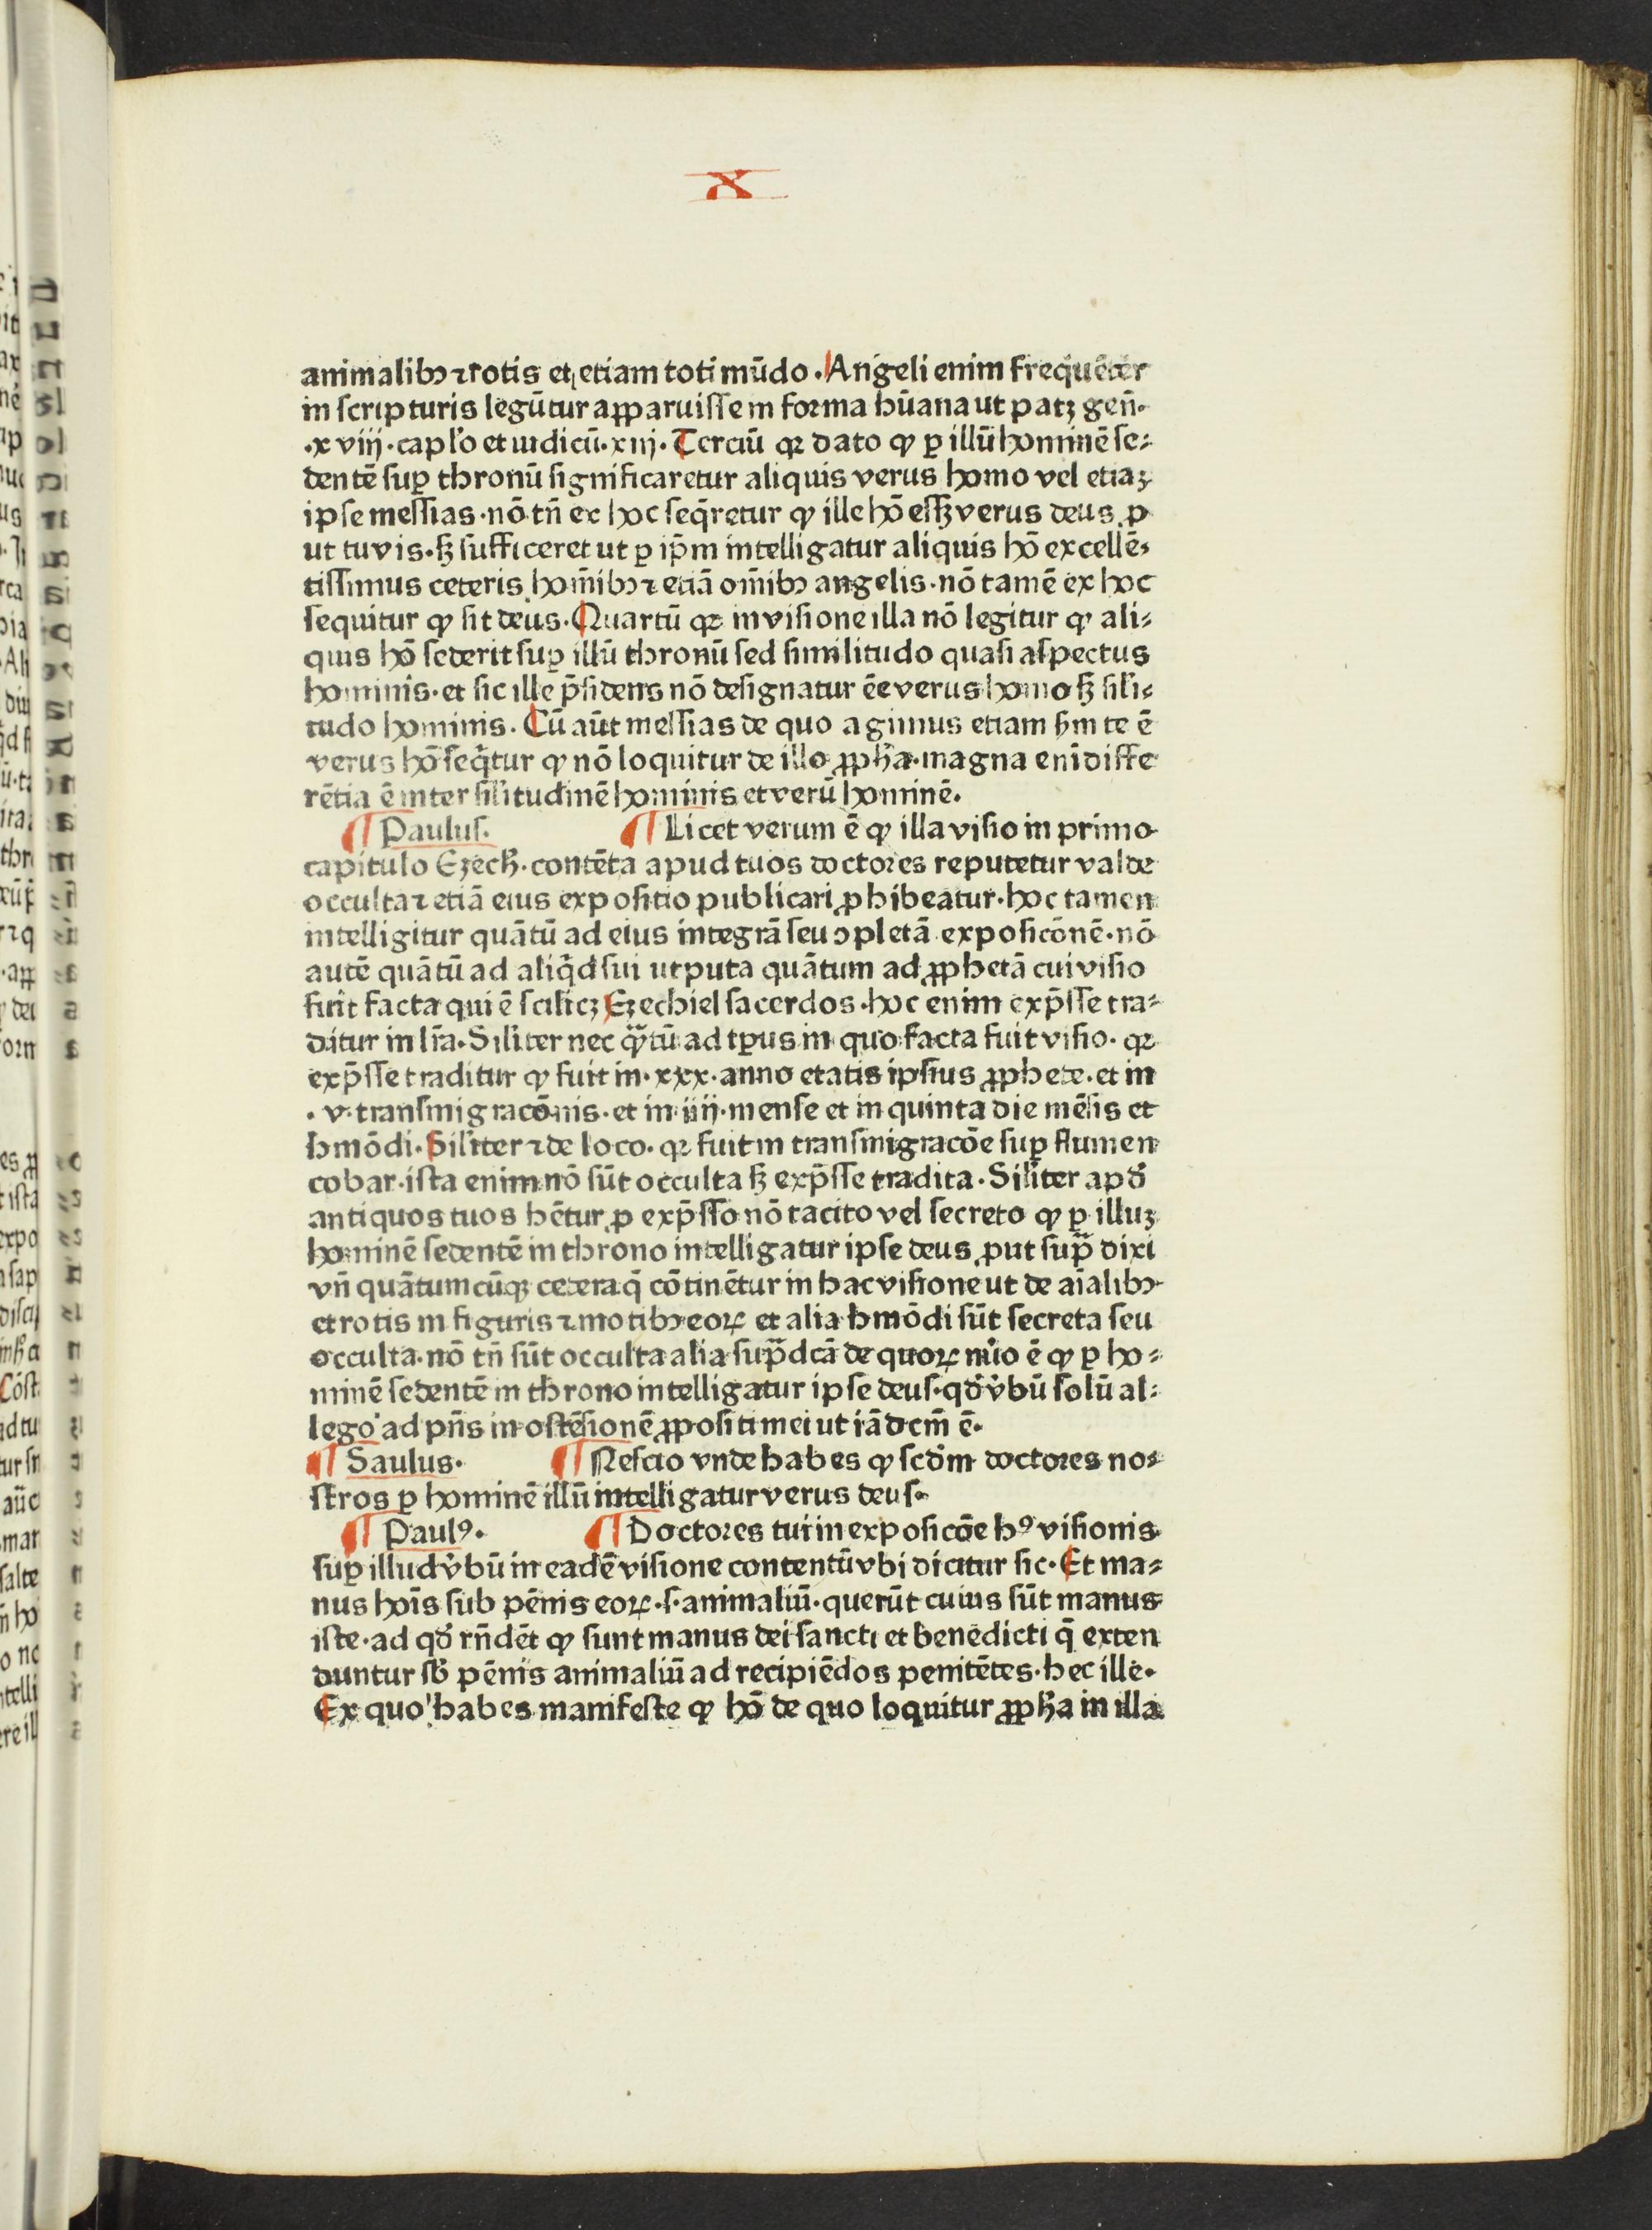 X
animalibꝫ ⁊ rotis et etiam toti mūdo · Angeli enim frequēter
in scripturis legūtur apparuisse in forma hūana ut patꝫ gen̄·
·xviij·cap̄lo et iudicū·xiij· Terciū qꝛ dato ꝙ ꝑ illū hominē se-
dentē suꝑ thronū significaretur aliquis verus homo vel etiaꝫ
ipse messias·nō tn̄ ex hoc seq̄retur ꝙ ille hō essꝫ verus deus ꝓ
ut tu vis·sꝫ sufficeret ut ꝑ ip̄m intelligatur aliquis hō excellē-
tissimus ceteris hom̄ibꝫ ⁊ etiā om̄ibꝫ angelis·nō tamē ex hoc
sequitur ꝙ sit deus·Quartū qꝛ in visione illa nō legitur ꝙ ali-
quis hō sederit suꝑ illū thronū sed similitudo quasi aspectus
hominis·et sic ille p̄sidens nō designatur ēe verus homo sꝫ sil'i-
tudo hominis· Cū aūt messias de quo agimus etiam ẜm te ē
verus hō seq̄tur ꝙ nō loquitur de illo ꝓph̄a·magna enī diffe
rētia ē inter sil'itudinē hominis et verū hominē·
¶ Paulus· ¶ Licet verum ē ꝙ illa visio in primo
capitulo Ezech̄·contēta apud tuos doctores reputetur valde
occulta ⁊ etiā eius expositio publicari ꝓhibeatur·hoc tamen
intelligitur quātū ad eius integrā seu ꝯpletā exposicōnē·nō
autē quātū ad aliq̄d sui utputa quātum ad ꝓphetā cui visio
fuit facta qui ē scilicꝫ Ezechiel sacerdos·hoc enim exp̄sse tra-
ditur in lr̄a·Sil'iter nec q̄tū ad tp̄us in quo facta fuit visio· qꝛ
exp̄sse traditur ꝙ fuit in·xxx·anno etatis ipsius ꝓphete·et in
·v·transmigracōnis·et in iiij·mense et in quinta die mēsis et
hmōdi·Sil'iter ⁊ de loco· qꝛ fuit in transmigracōe suꝑ flumen
cobar·ista enim nō sūt occulta sꝫ exp̄sse tradita·Sil'iter apd'
antiquos tuos hētur ꝓ exp̄sso nō tacito vel secreto ꝙ ꝑ illuꝫ
hominē sedentē in throno intelligatur ipse deus ꝓut sup̄ dixi
vn̄ quātumcūqꝫ cetera q̄ cōtinētur in hac visione ut de aīalibꝫ
et rotis in figuris ⁊ motibꝫ eoꝝ et alia hmōdi sūt secreta seu
occulta·nō tn̄ sūt occulta alia sup̄dcā de quoꝝ nu'o ē ꝙ ꝑ ho-
minē sedentē in throno intelligatur ipse deus·qd' v'bū solū al-
lego ad pn̄s in ostēsionē ꝓpositi mei ut iā dcm̄ ē·
¶ Saulus· ¶ Nescio vnde habes ꝙ scd'm doctores no-
stros ꝑ hominē illū intelligatur verus deus·
¶ Paulꝰ· ¶ Doctores tui in exposicōe hꝰ visionis
suꝑ illud v'bū in eadē visione contentū vbi dicitur sic·Et ma-
nus hoīs sub pēnis eoꝝ·s·animaliū·querūt cuius sūt manus
iste·ad qd' rn̄dēt ꝙ sunt manus dei sancti et benedicti q̄ exten
duntur sb' pēnis animaliū ad recipiēdos penitētes·hec ille·
Ex quo habes manifeste ꝙ hō de quo loquitur ꝓph̄a in illa